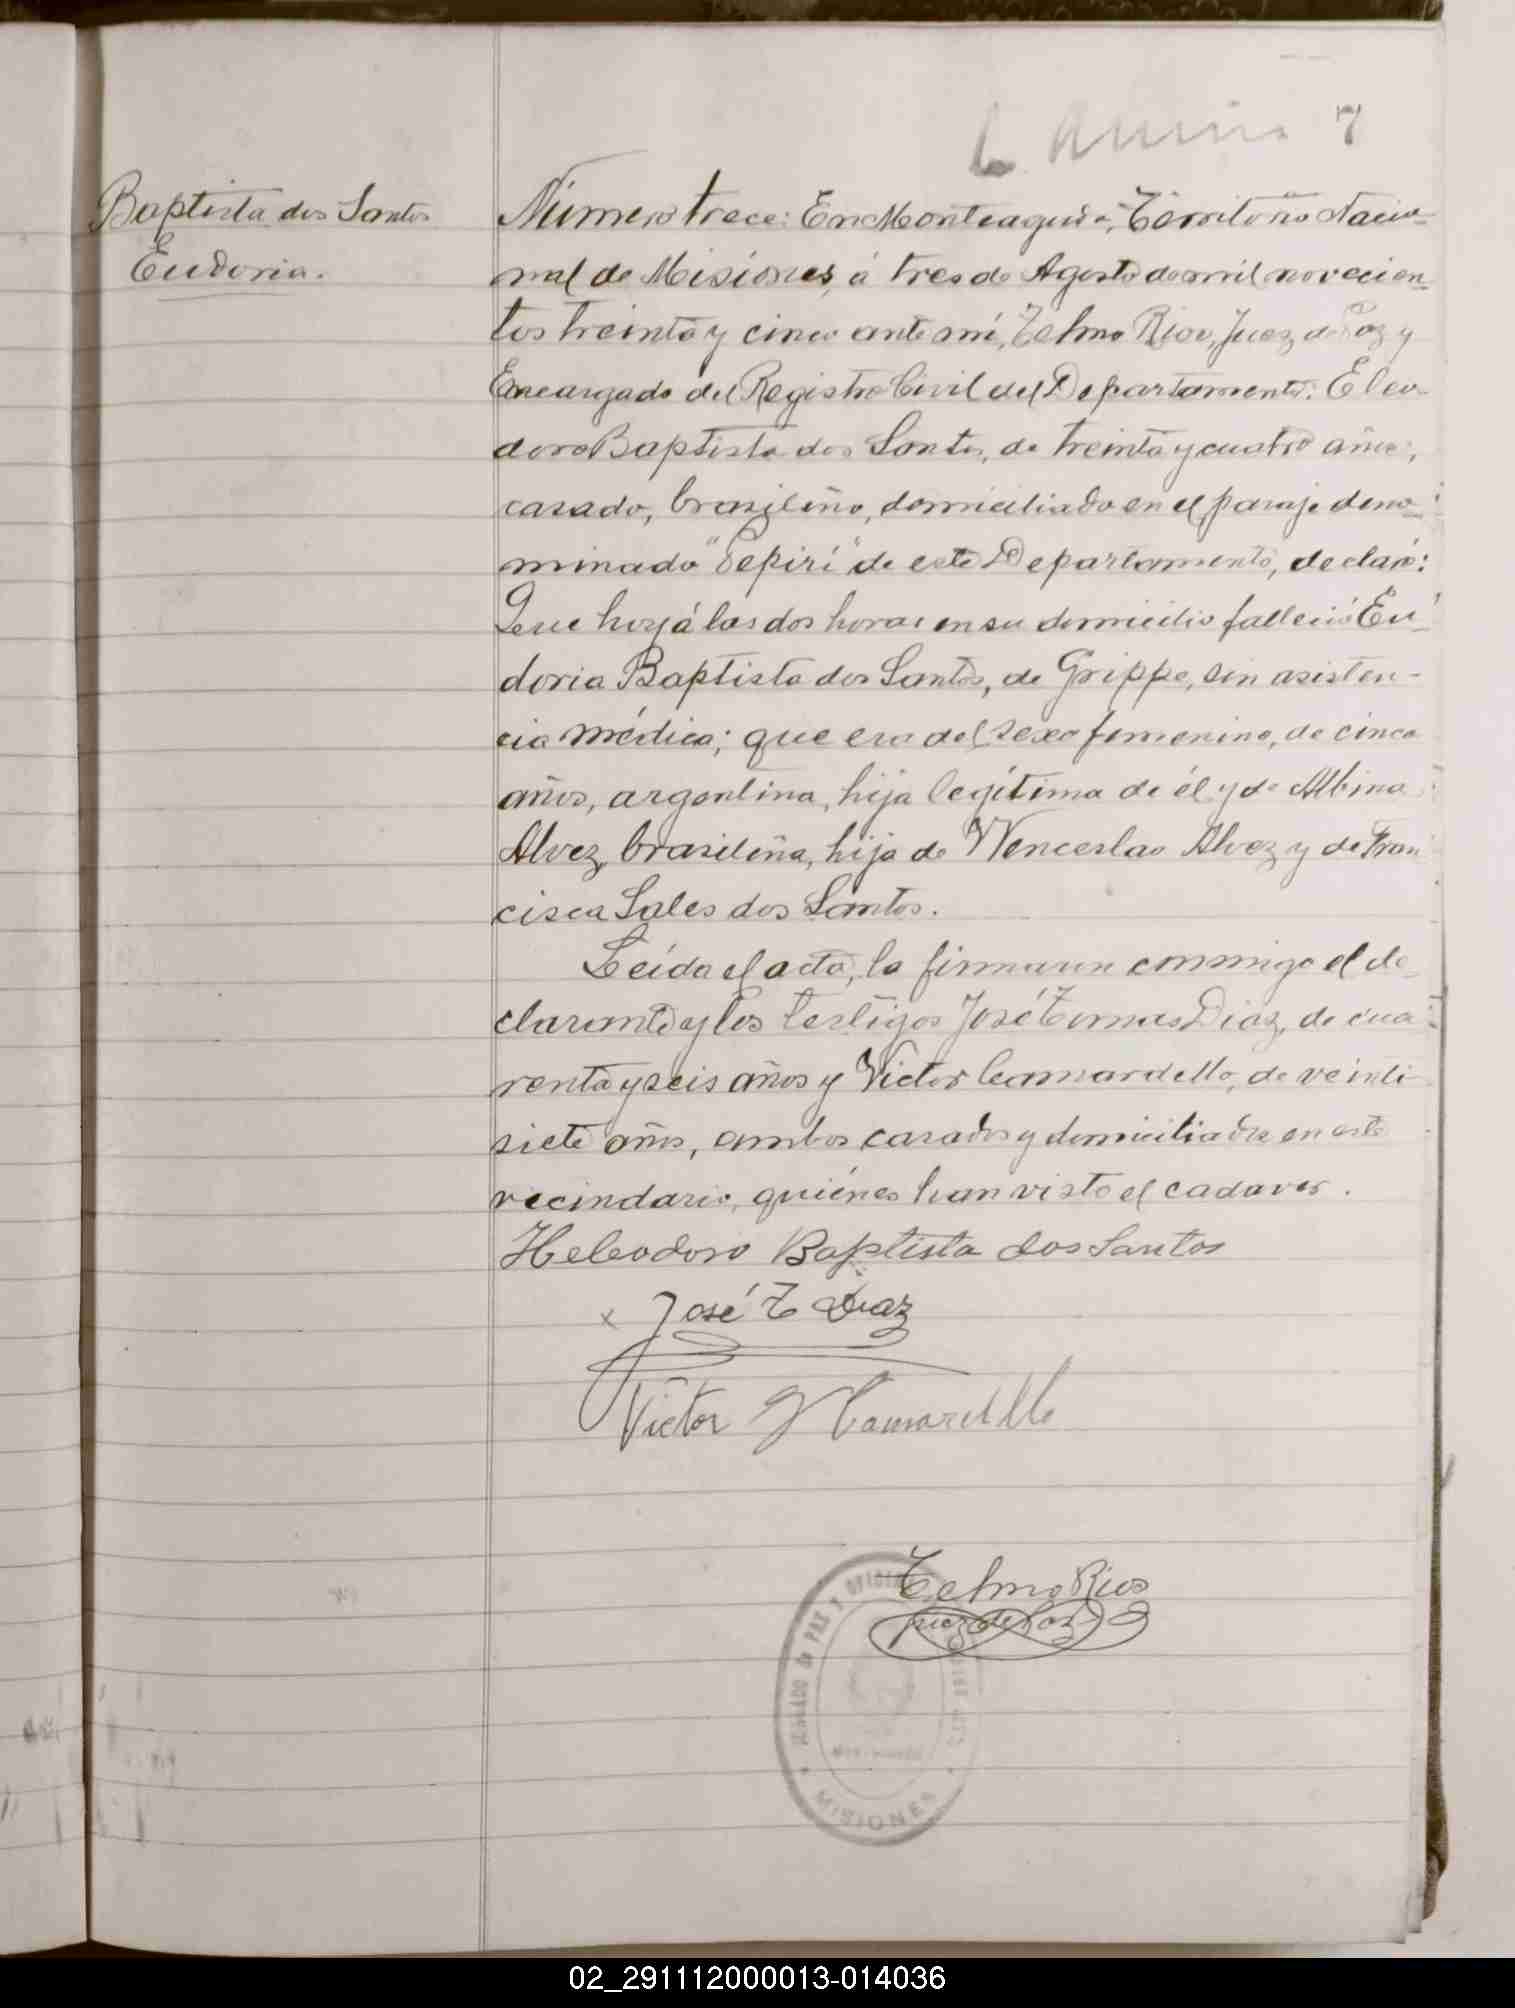 7
Baptista dos Santos
Eudoria.
Número trece: En Monteagudo, Territorio Nacio-
nal de Misiones, á tres de Agosto de mil novecien-
tos treinta y cinco ante mí, Telmo Rios, Juez de Paz y
Encargado del Registro Civil del Departamento: Eleo-
doro Baptista dos Santos, de treinta y cuatro años,
casado, brasileño, domiciliado en el paraje deno-
minado "Pepirí" de este Departamento, declaró:
Que hoy á las dos horas en su domicilio falleció Eu-
doria Baptista dos Santos, de Grippe, sin asisten-
cia médica; que era del sexo femenino, de cinco
años, argentina, hija legítima de él y de Albina
Alvez, brasileña, hija de Wenceslao Alvez y de Fran
cisca Sales dos Santos.
Leída el acta, la firmaron conmigo el de-
clarante y los testigos José Tomas Diaz, de cua-
renta y seis años y Victor Camardello, de veinti-
siete años, ambos casados y domiciliados en este
vecindario, quiénes han visto el cadaver.
Heleodoro Baptista dos Santos
x José T Diaz
Victor Y Camardello
Telmo Rios
juez de Paz
JUZGADO de PAZ Y OFICINA
MISIONES
02_291112000013-014036